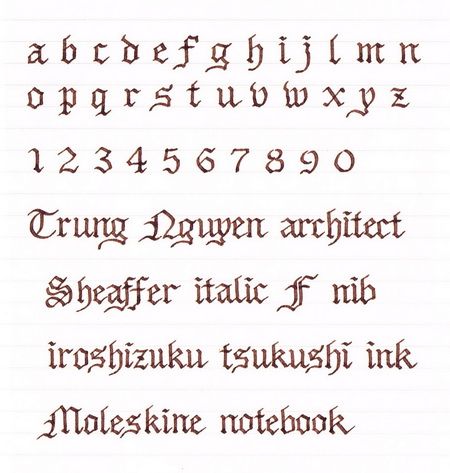 a b c d e f g h i j l m n
o p q r s t u v w x y z
1 2 3 4 5 6 7 8 9 0
Trung Nguyen architect
Sheaffer italic F nib
iroshizuku tsukushi ink
Moleskine notebook